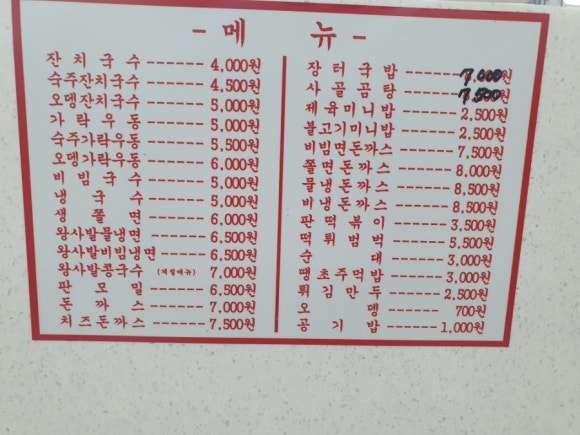 - 메 뉴 -
잔치국수 ------ 4,000원
숙주잔치국수 ------ 4,500원
오뎅잔치국수 ------ 5,000원
가락우동 ------ 5,000원
숙주가락우동 ------ 5,500원
오뎅가락우동 ------ 6,000원
비빔국수 ------ 5,000원
냉국수 ------ 5,000원
생쫄면 ------ 6,000원
왕사발물냉면 ------ 6,500원
왕사발비빔냉면 ------ 6,500원
왕사발콩국수 (계절메뉴) 7,000원
판모밀 ------ 6,500원
돈까스 ------ 7,000원
치즈돈까스 ------ 7,500원
장터국밥 ------ 7,000원
사골곰탕 ------ 7,500원
제육미니밥 ------ 2,500원
불고기미니밥 ------ 2,500원
비빔면돈까스 ------ 7,500원
쫄면돈까스 ------ 8,000원
물냉돈까스 ------ 8,500원
비냉돈까스 ------ 8,500원
판떡볶이 ------ 3,500원
떡튀범벅 ------ 5,500원
순대 ------ 3,000원
땡초주먹밥 ------ 3,000원
튀김만두 ------ 2,500원
오뎅 ------ 700원
공기밥 ------ 1,000원